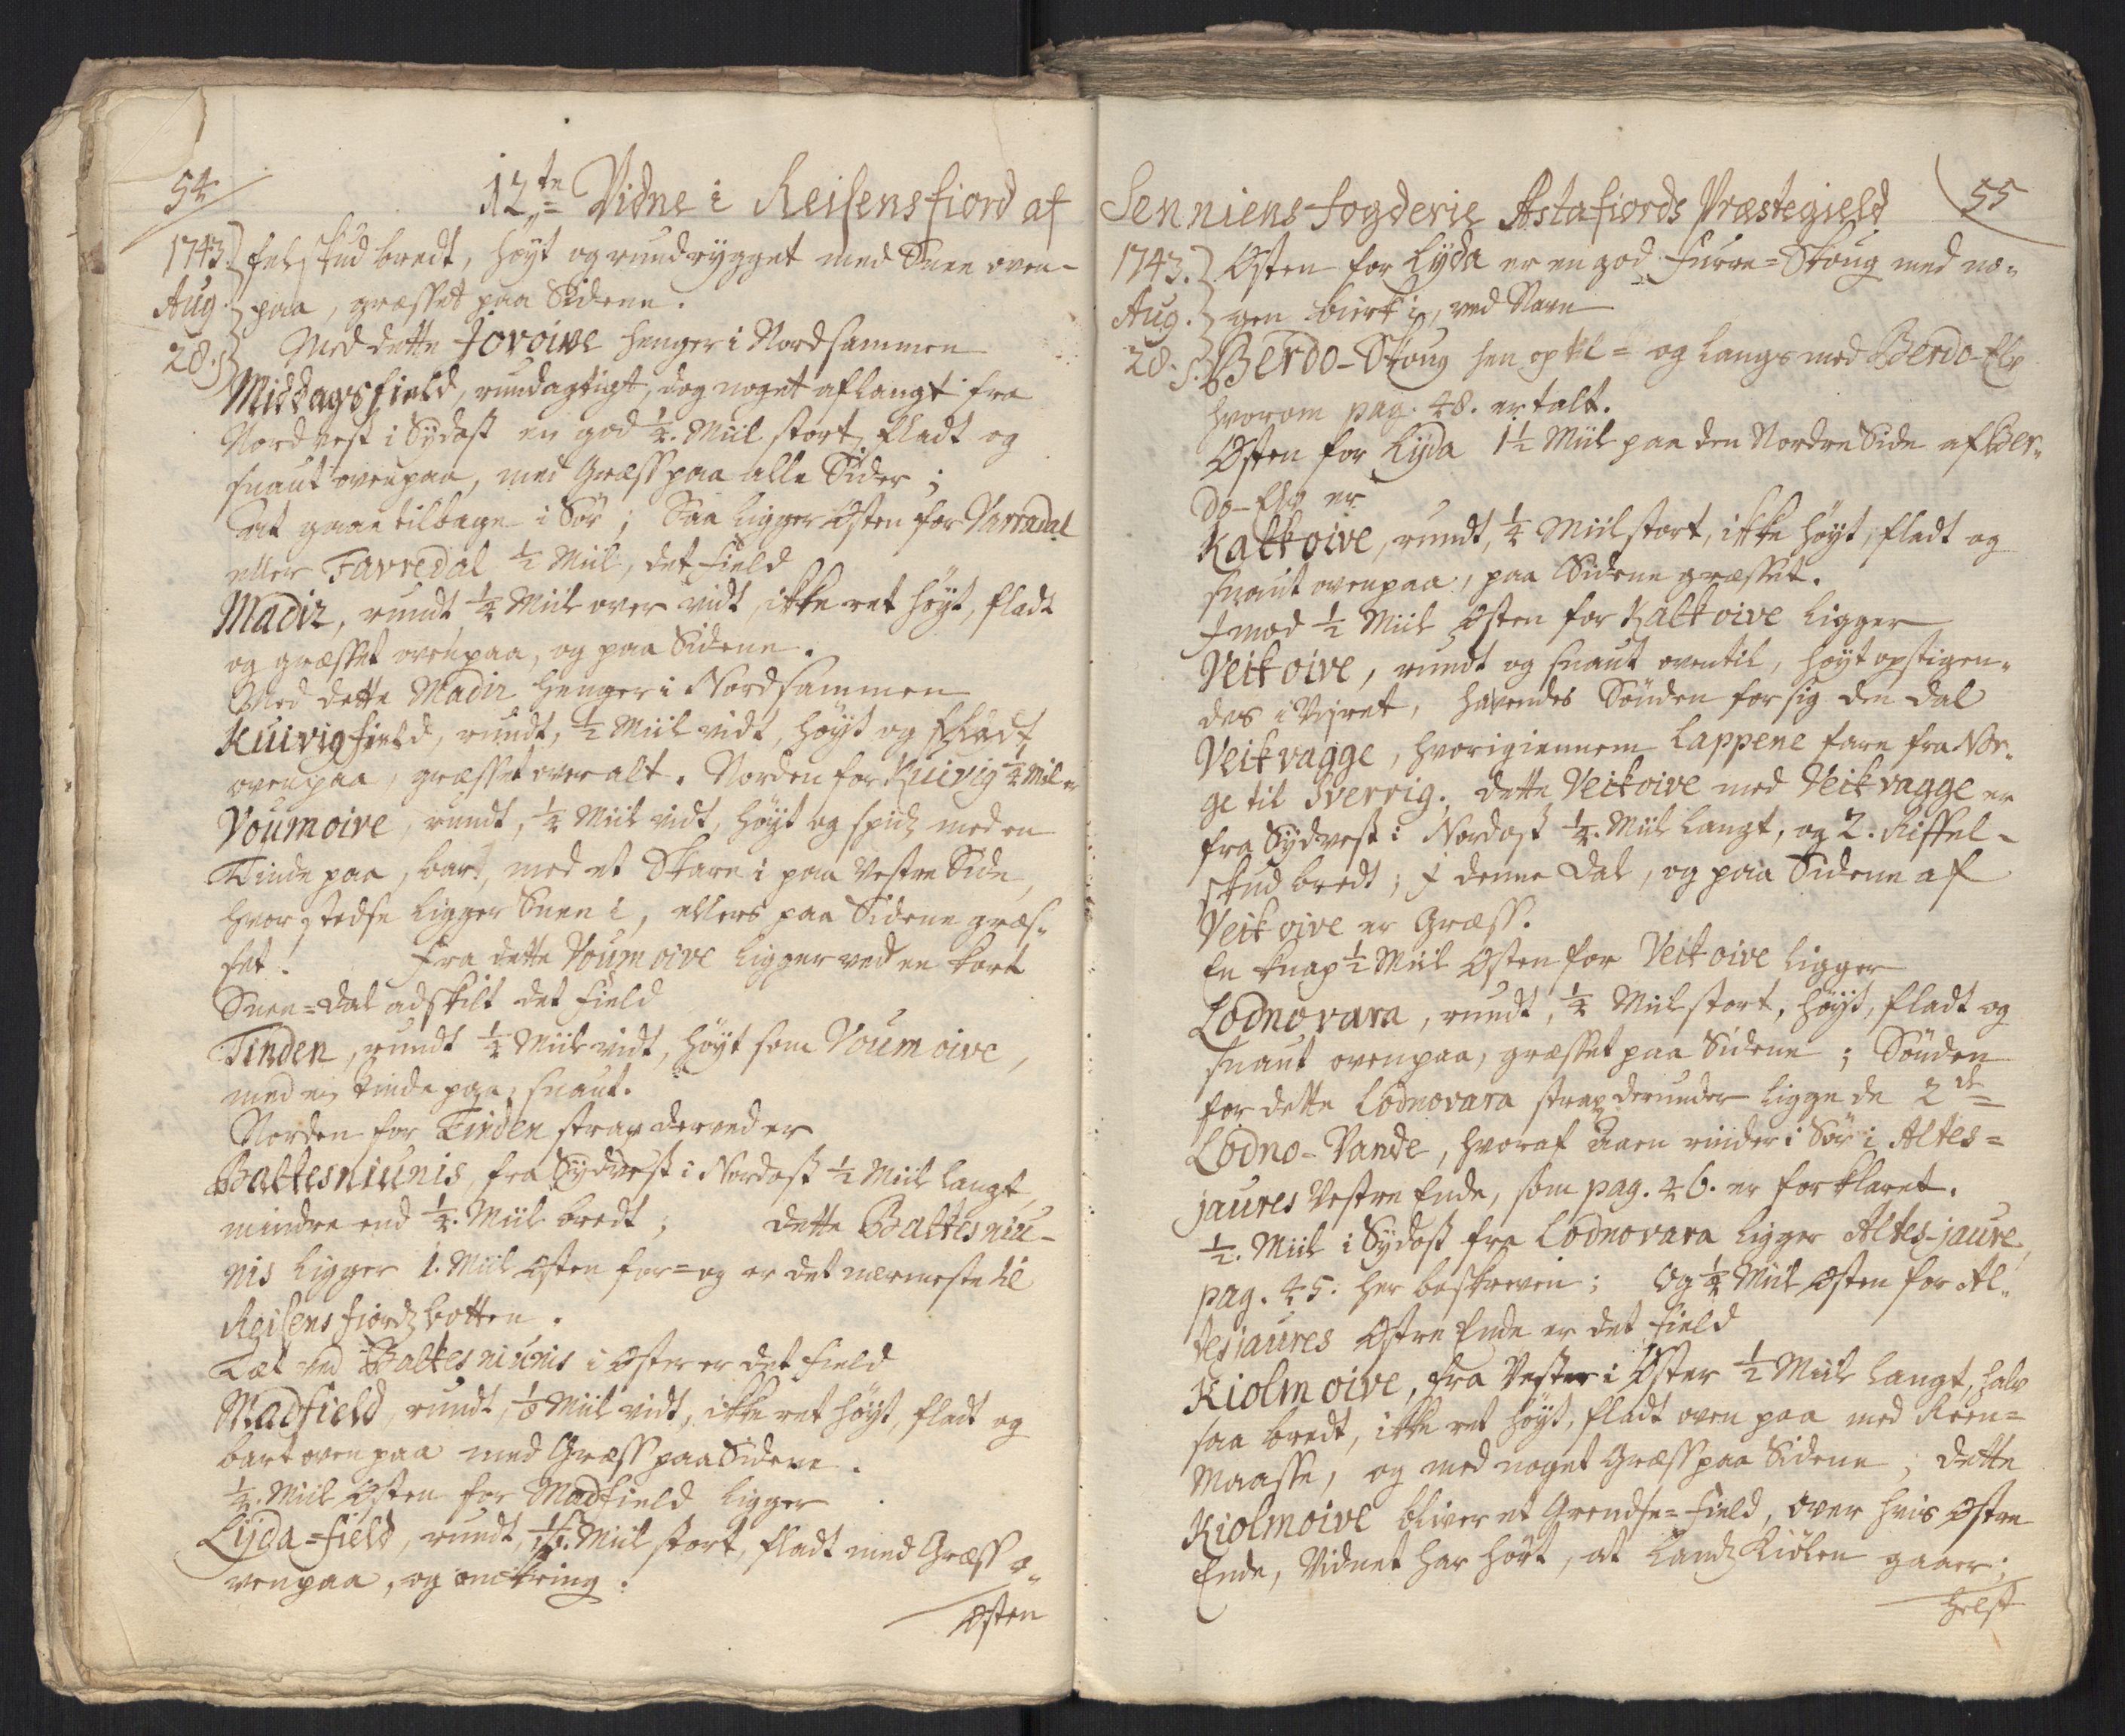 54
12te Vidne i Reisensfiord af
1743. felskud bredt, høyt og rundrygget med Snee oven-
Aug. paa, græsset paa Sidene.
28. Med dette Jovoive henger i Nord sammen
Middagsfield, rundagtigt, dog noget aflangt fra
Nordvest i Sydost en god ¼. Miil stort, fladt og
snaut ovenpaa, med Græss paa alle Sider;
At gaae tilbage i Sør; Saa ligger Østen for Varradal
eller Favredal ½ Miil, det Field
Madir, rundt ¼ Miil over vidt, ikke ret høyt, fladt
og græsset ovenpaa, og paa Sidene.
Med dette Madir henger i Nord sammen
Kuivigfield, rundt, ½ Miil vidt, høyt og fladt
ovenpaa, græsset over alt. Norden for Kuivig ¼ Mil er
Voumoive, rundt, ¼ Miil vidt, høyt og spidz med en
Tinde paa, bart, med et Skare i paa Vestre Side,
hvor stedse ligger Snee i, ellers paa Sidene græs-
set. Fra dette Voumoive ligger ved en kort
Snee-Dal adskilt det Field
Tinden, rundt ¼ Miil vidt, høyt som Voumoive,
med en Tinde paa, snaut.
Norden for Tinden strax derved er
Baltesniunis, fra Sydvest i Nordost ½ Miil langt,
mindre end ¼. Miil bredt; dette Baltesniu-
nis ligger 1. Miil Østen for- og er det nærmeste til
Reisens fiordz botten.
Tæt ved Baltesniunis i Øster er det Field
Madfield, rundt, ⅛ Miil vidt, ikke ret høyt, fladt og
bart ovenpaa med Græss paa Sidene.
¼. Miil Østen for Madfield ligger
Lyda-field, rundt, Miil stort, fladt med Græss o-
venpaa, og omkring.
Østen
Senniens Fogderie Astafiords Præstegield
55
1743. Østen for Lyda er en god Furre-Skoug med no-
Aug. gen birk i, ved Navn
28. Berdo-Skoug hen op til- og langs med Berdo-Elv
hvorom pag. 48. er talt.
Østen for Lyda 1½ Miil paa den Nordre Side af Ber-
do-Elv er
Kalkoive, rundt, ¼ Miil stort, ikke høyt, fladt og
snaut ovenpaa, paa Sidene græsset.
Imod ½ Miil Østen for Kalkoive ligger
Veikoive, rundt og snaut oventil, høyt opstigen-
des i Vejret, havendes Sønden for sig den Dal
Veikvagge, hvorigiennem Lappene fare fra Nor-
ge til Sverrig. Dette Veikoive med Veikvagge er
fra Sydvest i Nordost ¼. Miil langt, og 2. Riffel-
skud bredt; I denne Dal, og paa Sidene af
Veikoive er Græss.
En knap ½ Miil Østen for Veikoive ligger
Lodnovara, rundt, ¼ Miil stort, høyt, fladt og
snaut ovenpaa, græsset paa Sidene; Sønden
for dette Lodnovara strax derunder ligge de 2de
Lodno-Vande, hvoraf Aaen rinder i Sør i Altes-
jaures Vestre Ende, som pag. 46. er forklaret.
½. Miil i Sydost fra Lodnovara ligger Altes-jaure,
pag. 45. her beskreven; Og ¼ Miil Østen for Al-
tesjaures Østre Ende er det Field
Kiolmoive, fra Vester i Øster ½ Miil langt, halv
saa bredt, ikke ret høyt, fladt oven paa med Reen-
Maasse, og med noget Græss paa Sidene; dette
Kiolmoive bliver et Grendse-Field, over hvis Østre
Ende, Vidnet har hørt, at Landz Kiølen gaaer;
helst